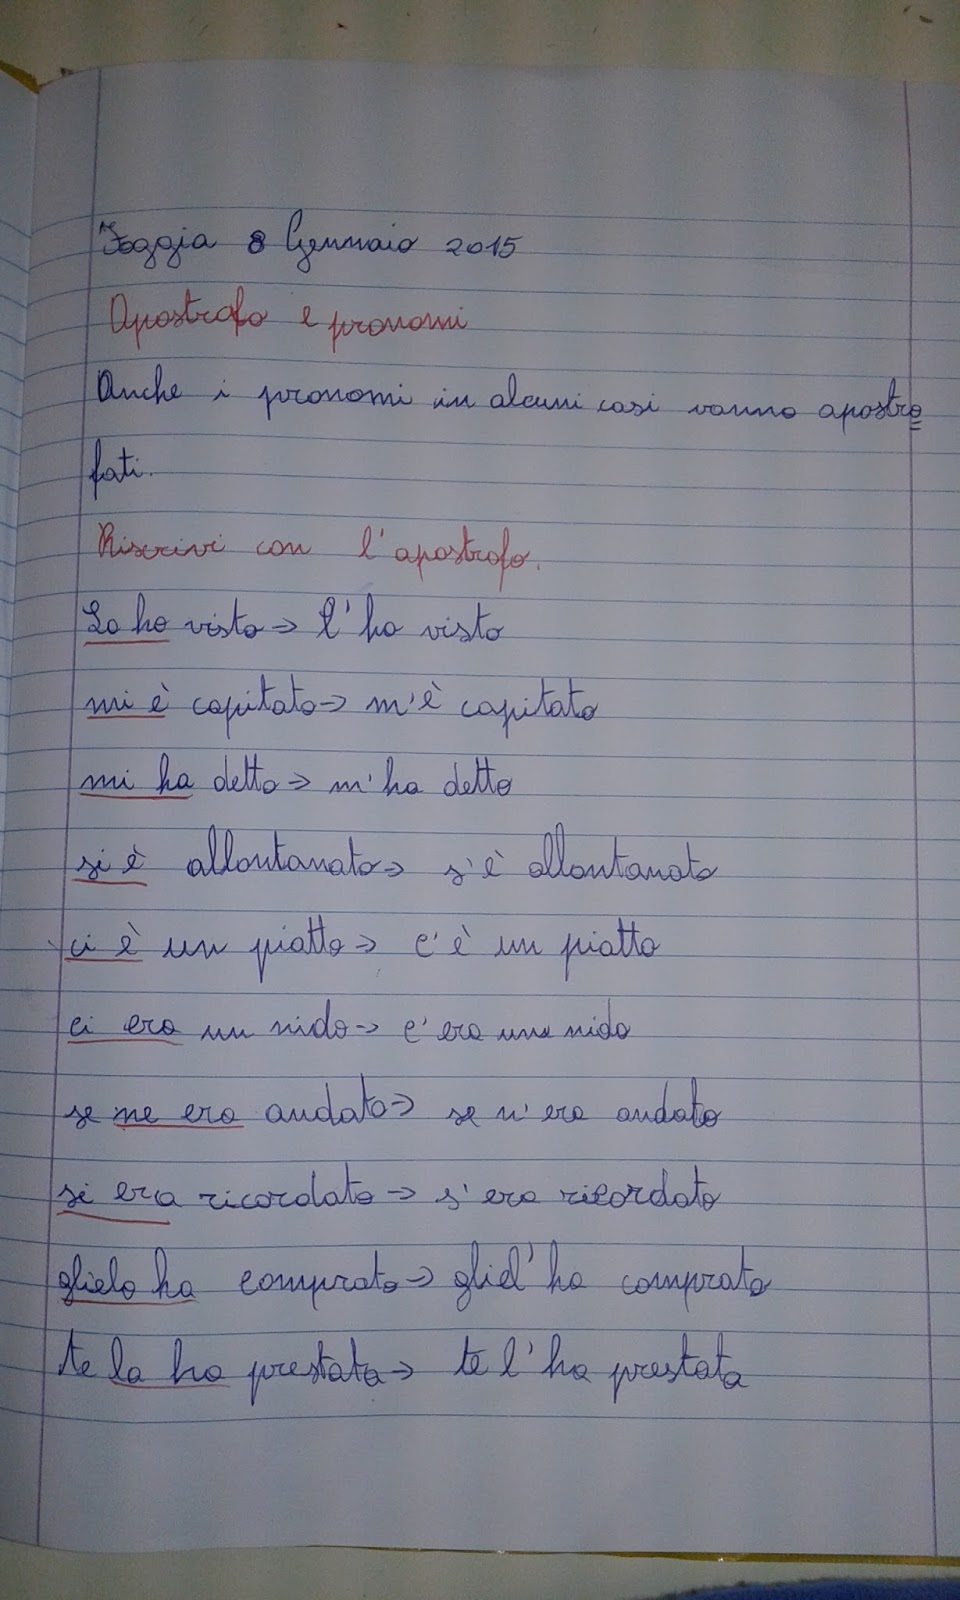 Foggia 8 Gennaio 2015
Apostrofo e pronomi
Anche i pronomi in alcuni casi vanno apostro=
fati.
Riscrivi con l'apostrofo.
Lo ho visto → l'ho visto
mi è capitato → m'è capitato
mi ha detto → m'ha detto
si è allontanato → s'è allontanato
ci è un piatto → c'è un piatto
ci era un nido → c'era un nido
se ne era andato → se n'era andato
si era ricordato → s'era ricordato
glielo ha comprato → gliel'ha comprato
te la ho prestata → te l'ho prestata